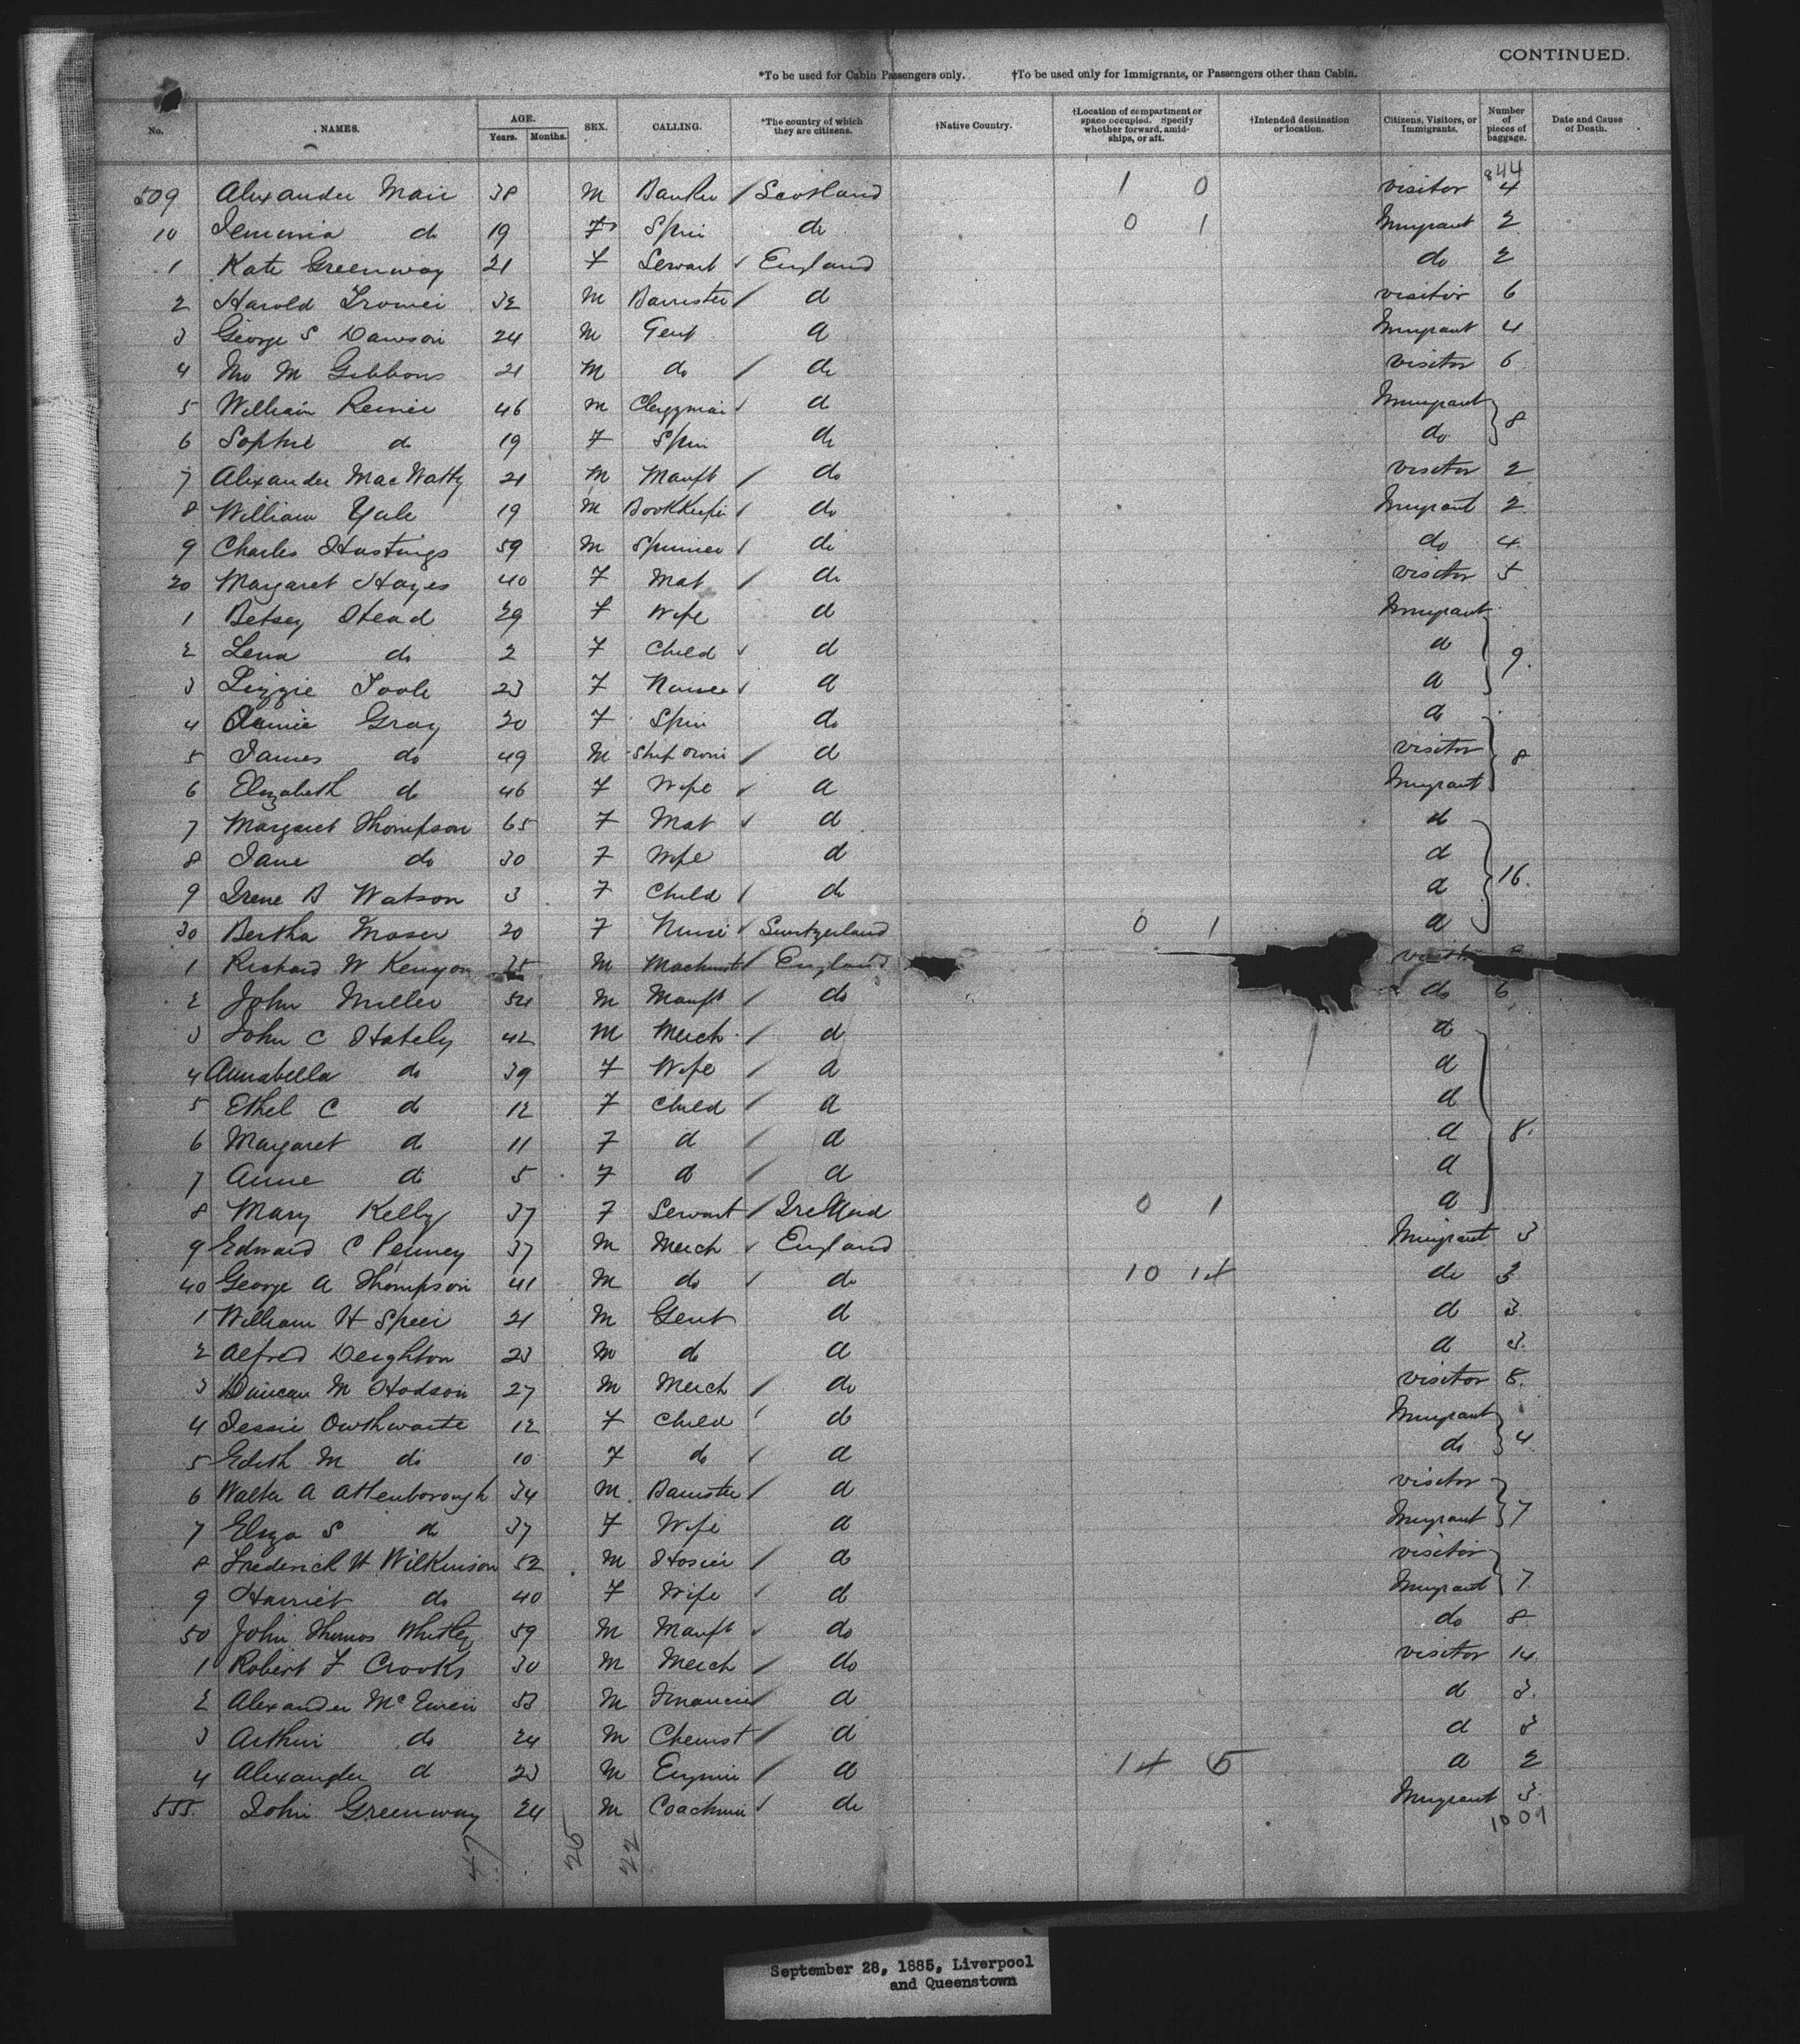 CONTINUED.
*To be used for Cabin Passengers only. †To be used only for Immigrants, or Passengers other than Cabin.
No. NAMES. AGE. Years. Months. SEX. CALLING. *The country of which they are citizens. †Native Country. †Location of compartment or space occupied. Specify whether forward, amidships, or aft. †Intended destination or location. Citizens, Visitors, or Immigrants. Number of pieces of baggage. Date and Cause of Death.
844
509 Alexander Mair 38 M Banker / Scotland 1 0 visitor 4
10 Jemima do 19 F Spin do 0 1 Immigrant 2
1 Kate Greenway 21 F Servant England do 2
2 Harold 32 M Barrister / d visitor 6
3 George S Dawson 24 M Gent d Immigrant 4
4 Jno M Gibbons 21 M do / do visitor 6
5 William 46 M Clergyman d Immigrant
6 Sophie do 19 F Spin do do 8
7 Alexander MacWatty 21 M Manft / do visitor 2
8 William Yule 19 M Bookkeeper / do Immigrant 2
9 Charles Hastings 59 M Spinner / do do 4
20 Margaret Hayes 40 F Mat / do visitor 5
1 Betsey Stead 29 F Wife d Immigrant
2 Lena do 2 F Child d d 9
3 Lizzie Toole 23 F Nurse d d
4 Annie Gray 20 F Spin do d
5 James do 49 M Ship owner / d visitor 8
6 Elizabeth do 46 F Wife d Immigrant
7 Margaret Thompson 65 F Mat d d
8 Jane do 30 F Wife d d
9 Irene B Watson 3 F Child / do d 16
30 Bertha Moser 20 F Nurse Switzerland 0 1 d
1 Richard W Kenyon 35 M Machinist England visitor
2 John Miller 54 M Manft / do do 6
3 John C Hately 42 M Merch / d d
4 Annabella do 39 F Wife / d d
5 Ethel C do 12 F Child / d d
6 Margaret d 11 F d / d d 8
7 Anne do 5 F d / d d
8 Mary Kelly 37 F Servant / Ireland 0 1 d
9 Edward C Penney 37 M Merch England Immigrant 3
40 George A Thompson 41 M do do 10 14 do 3
1 William H Speir 21 M Gent d d 3
2 Alfred Deighton 23 M do d d 3
3 Duncan M Hodson 27 M Merch / do visitor 8
4 Jessie Owthwaite 12 F Child d Immigrant
5 Edith M do 10 F do d do 4
6 Walter A Attenborough 34 M Barrister / d visitor
7 Eliza S d 37 F Wife d Immigrant 7
8 Frederick H Wilkinson 52 M Hosier / d visitor
9 Harriet do 40 F Wife d Immigrant 7
50 John Thomas Whitley 59 M Manft do do 8
1 Robert F Crooks 30 M Merch / do visitor 14
2 Alexander McEwen 53 M Financier / d d 3
3 Arthur do 24 M Chemist / d d 3
4 Alexander d 23 M Engineer / d 14 5 d 2
555 John Greenway 24 M Coachman do Immigrant 3
1009
47 25 22
September 28, 1885, Liverpool
and Queenstown